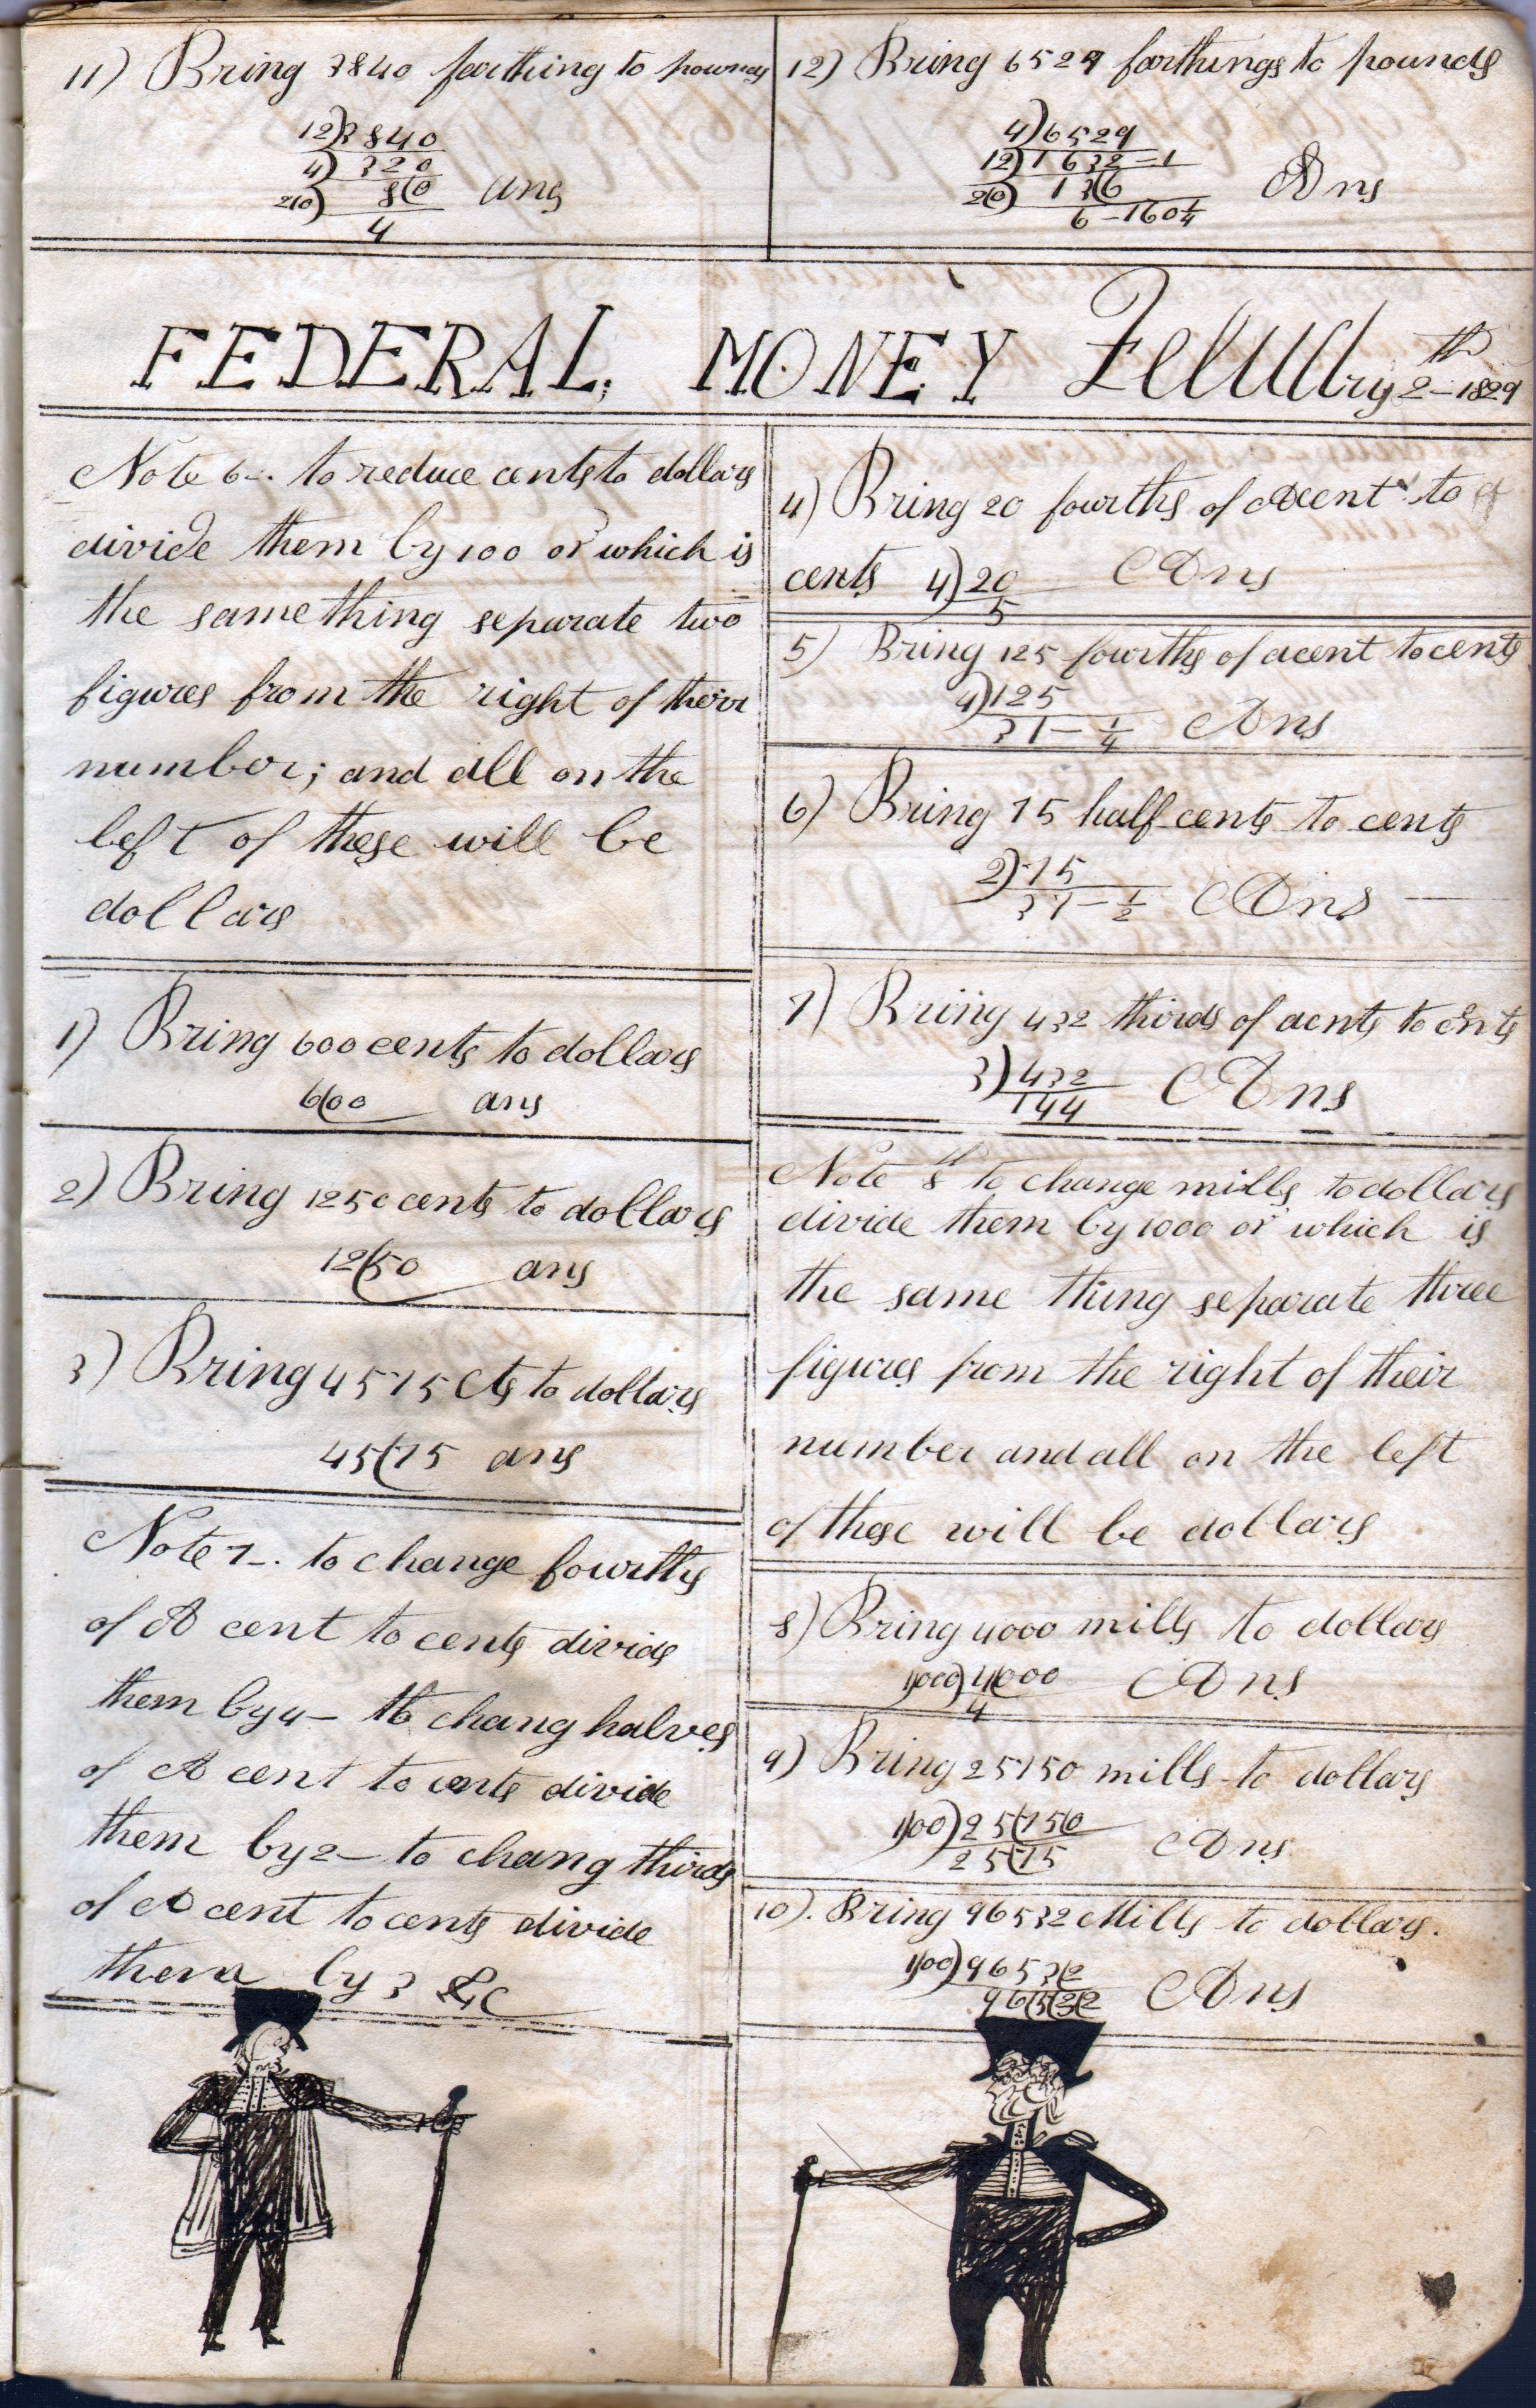 11) Bring 3840 farthing to pounds
12)3840
4) 320
2(0) 8(0 ans
4
12) Bring 6529 farthings to pounds
4)6529
12)1632-1
2(0) 13(6 Ans
6-160¼
FEDERAL. MONEY February 2th-1829
Note 6-. to reduce cents to dollars
divide them by 100 or which is
the same thing separate two
figures from the right of their
number; and all on the
left of these will be
dollars
1) Bring 600 cents to dollars
6(00 ans
2) Bring 1250 cents to dollars
12(50 ans
3) Bring 4575 Cts to dollars
45(75 ans
Note 7-. to change fourths
of A cent to cents divide
them by 4- to chang halves
of A cent to cents divide
them by 2- to chang thirds
of A cent to cents divide
them by 3 &c
4) Bring 20 fourths of a cent to
cents 4)20 Ans
5
5) Bring 125 fourths of acent to cents
4)125
31-¼ Ans
6) Bring 75 half cents to cents
2)75
37-½ Ans
7) Bring 432 thirds of acnts to cnts
3)432 Ans
144
Note 8th to change mills to dollars
divide them by 1000 or which is
the same thing separate three
figures from the right of their
number and all on the left
of these will be dollars
8) Bring 4000 mills to dollars
1)000)4(000 Ans
4
9) Bring 25750 mills to dollars
1)00)25(75(0 Ans
25(75
10). Bring 96532 Mills to dollars.
1)00)9653(2 Ans
96(5(3(2